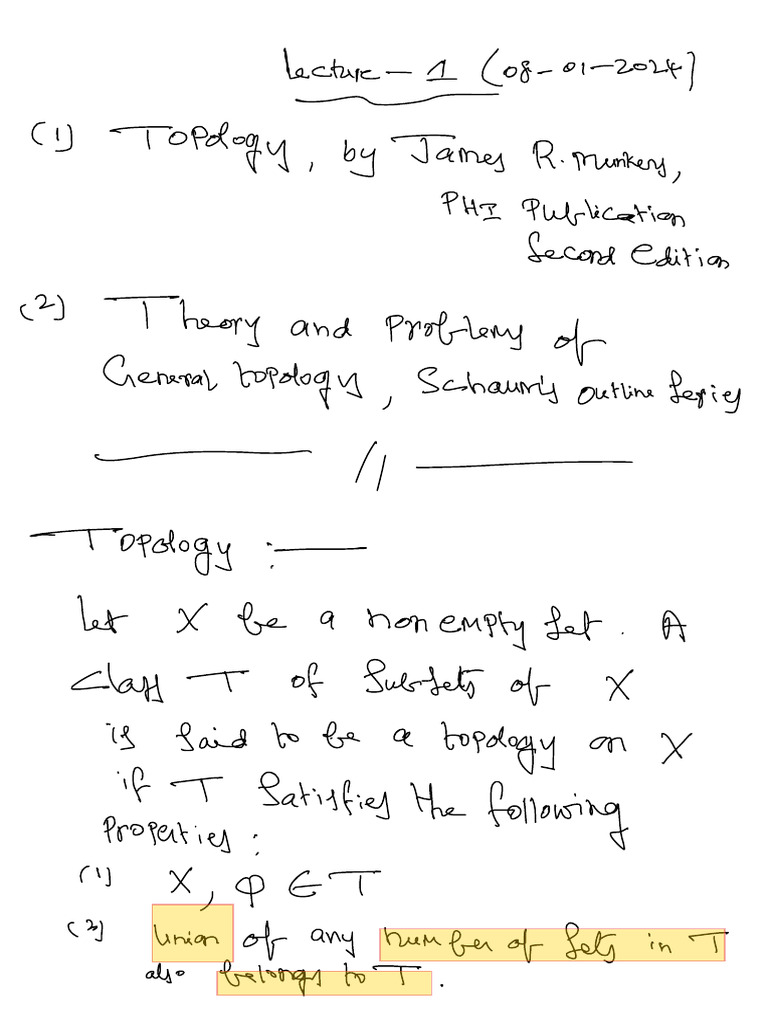 Lecture - 1 (08-01-2024)
(1) Topology, by James R. Munkers,
PHI Publication
Second Edition
(2) Theory and Problems of
General topology, Schaum's outline Series
//
Topology :
Let X be a non empty set. A
class T of subsets of X
is said to be a topology on X
if T satisfies the following
Properties :
(1) X, φ ∈ T
(2) Union of any number of sets in T
also belongs to T.